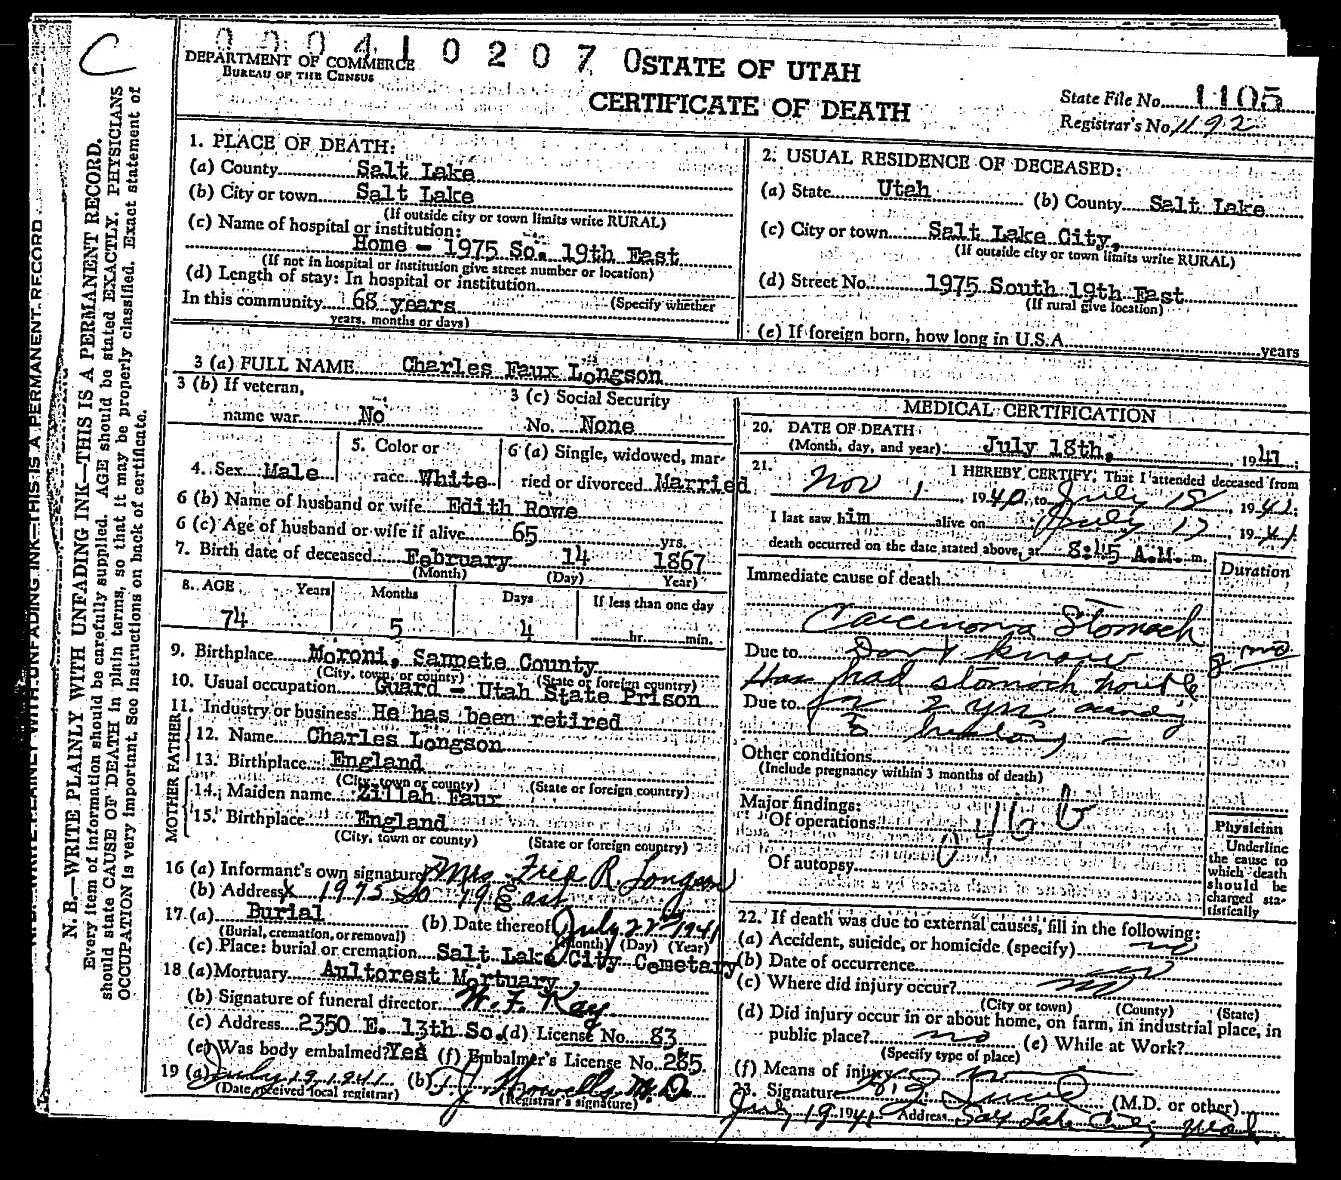 C
000410207 0
DEPARTMENT OF COMMERCE
BUREAU OF THE CENSUS
STATE OF UTAH
CERTIFICATE OF DEATH
State File No. 1105
Registrar's No. 1192
N. B.—WRITE PLAINLY WITH UNFADING INK—THIS IS A PERMANENT RECORD.
Every item of information should be carefully supplied. AGE should be stated EXACTLY. PHYSICIANS
should state CAUSE OF DEATH in plain terms, so that it may be properly classified. Exact statement of
OCCUPATION is very important. See instructions on back of certificate.
1. PLACE OF DEATH:
(a) County Salt Lake
(b) City or town Salt Lake
(If outside city or town limits write RURAL)
(c) Name of hospital or institution:
Home - 1975 So. 19th East
(If not in hospital or institution give street number or location)
(d) Length of stay: In hospital or institution
In this community 68 years (Specify whether
years, months or days)
2. USUAL RESIDENCE OF DECEASED:
(a) State Utah (b) County Salt Lake
(c) City or town Salt Lake City,
(If outside city or town limits write RURAL)
(d) Street No. 1975 South 19th East
(If rural give location)
(e) If foreign born, how long in U.S.A. years
3 (a) FULL NAME Charles Faux Longson
3 (b) If veteran,
name war No
3 (c) Social Security
No. None
4. Sex Male
5. Color or
race White
6 (a) Single, widowed, mar-
ried or divorced Married
6 (b) Name of husband or wife Edith Rowe
6 (c) Age of husband or wife if alive 65 yrs.
7. Birth date of deceased February 14 1867
(Month) (Day) Year)
8. AGE Years Months Days If less than one day
74 5 4 hr. min.
9. Birthplace Moroni, Sanpete County
(City, town, or county) (State or foreign country)
10. Usual occupation Guard - Utah State Prison
11. Industry or business He has been retired
FATHER
12. Name Charles Longson
13. Birthplace England
(City, town or county) (State or foreign country)
MOTHER
14. Maiden name Zillah Faux
15. Birthplace England
(City, town or county) (State or foreign country)
16 (a) Informant's own signature Mrs. Fred R. Longson
(b) Address x 1975 So 19 East
17. (a) Burial (b) Date thereof July 22nd 1941
(Burial, cremation, or removal) (Month) (Day) (Year)
(c) Place: burial or cremation Salt Lake City Cemetary
18 (a) Mortuary Aultorest Mortuary
(b) Signature of funeral director W. F. Kay
(c) Address 2350 E. 13th So. (d) License No. 83
(e) Was body embalmed? Yes (f) Embalmer's License No. 285.
19 (a) July 19 1941 (b) T. J. Howells M.D.
(Date received local registrar) (Registrar's signature)
MEDICAL CERTIFICATION
20. DATE OF DEATH
(Month, day, and year) July 18th, 1941
21. I HEREBY CERTIFY: That I attended deceased from
Nov 1, 1940, to July 18, 1941;
I last saw him alive on July 17 1941
death occurred on the date stated above, at 8:45 A.M. m.
Duration
Immediate cause of death
Carcinoma Stomach
Due to Don't know
Has had stomach trouble
Due to for 2 yrs
Other conditions
(Include pregnancy within 3 months of death)
Major findings:
Of operations
046 b
Of autopsy
Physician
Underline
the cause to
which death
should be
charged sta-
tistically
22. If death was due to external causes, fill in the following:
(a) Accident, suicide, or homicide (specify) no
(b) Date of occurrence no
(c) Where did injury occur? no
(City or town) (County) (State)
(d) Did injury occur in or about home, on farm, in industrial place, in
public place? no (e) While at Work?
(Specify type of place)
(f) Means of injury
23. Signature (M.D. or other)
July 19 1941 Address Salt Lake City Utah